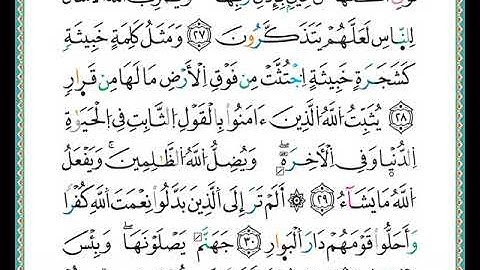 لِلنَّاسِ لَعَلَّهُمْ يَتَذَكَّرُونَ ٢٧ وَمَثَلُ كَلِمَةٍ خَبِيثَةٍ
كَشَجَرَةٍ خَبِيثَةٍ اجْتُثَّتْ مِن فَوْقِ الْأَرْضِ مَا لَهَا مِن قَرَارٍ
٢٨ يُثَبِّتُ اللَّهُ الَّذِينَ ءَامَنُوا بِالْقَوْلِ الثَّابِتِ فِي الْحَيَوٰةِ
الدُّنْيَا وَفِي الْأَخِرَةِ وَيُضِلُّ اللَّهُ الظَّٰلِمِينَ وَيَفْعَلُ
اللَّهُ مَا يَشَآءُ ٢٩ ۞ أَلَمْ تَرَ إِلَى الَّذِينَ بَدَّلُوا نِعْمَتَ اللَّهِ كُفْرًا
وَأَحَلُّوا قَوْمَهُمْ دَارَ الْبَوَارِ ٣٠ جَهَنَّمَ يَصْلَوْنَهَا وَبِئْسَ